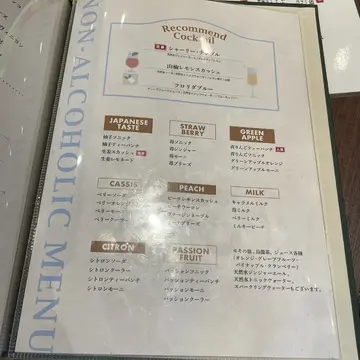 NON-ALCOHOLIC MENU
Recommend
Cocktail
シャーリーテンプル
山塩レモンスカッシュ
フロリダブルー
JAPANESE
TASTE
柚子ソニック
柚子ティーパンチ
生姜スカッシュ
生姜レモネード
STRAW
BERRY
苺ソニック
苺ジンジャー
苺モーニ
苺ブリーズ
GREEN
APPLE
青りんごティーパンチ
青りんごソニック
グリーンアップルオレンジ
グリーンアップルモーニ
CASSIS
ベリーソーダ
ベリーオレンジ
ベリーモーニ
ベリークーラー
PEACH
ピーチレモンスカッシュ
ピーチウーロン
ファージーネーブル
ピーチブリーズ
MILK
キャラメルミルク
苺ミルク
ベリーミルク
ミルキーピーチ
CITRON
シトロンソーダ
シトロンクーラー
シトロンティーパンチ
シトロンモーニ
PASSION
FRUIT
パッションソニック
パッションティーパンチ
パッションモーニ
パッションクーラー
※その他、山龍茶、ジュース各種
(オレンジ・グレープフルーツ・
パイナップル・クランベリー)
天然水ジンジャーエール、
天然水トニックウォーター、
スパークリングウォーターもございます。